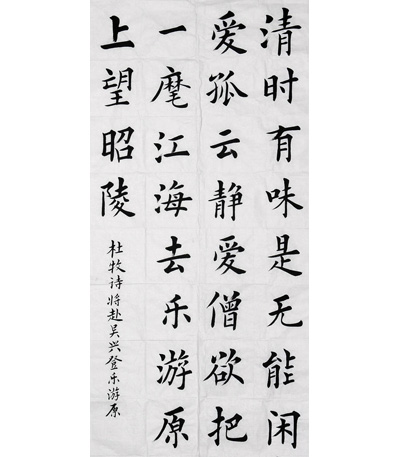 清时有味是无能闲
爱孤云静爱僧欲把
一麾江海去乐游原
上望昭陵
杜牧诗将赴吴兴登乐游原